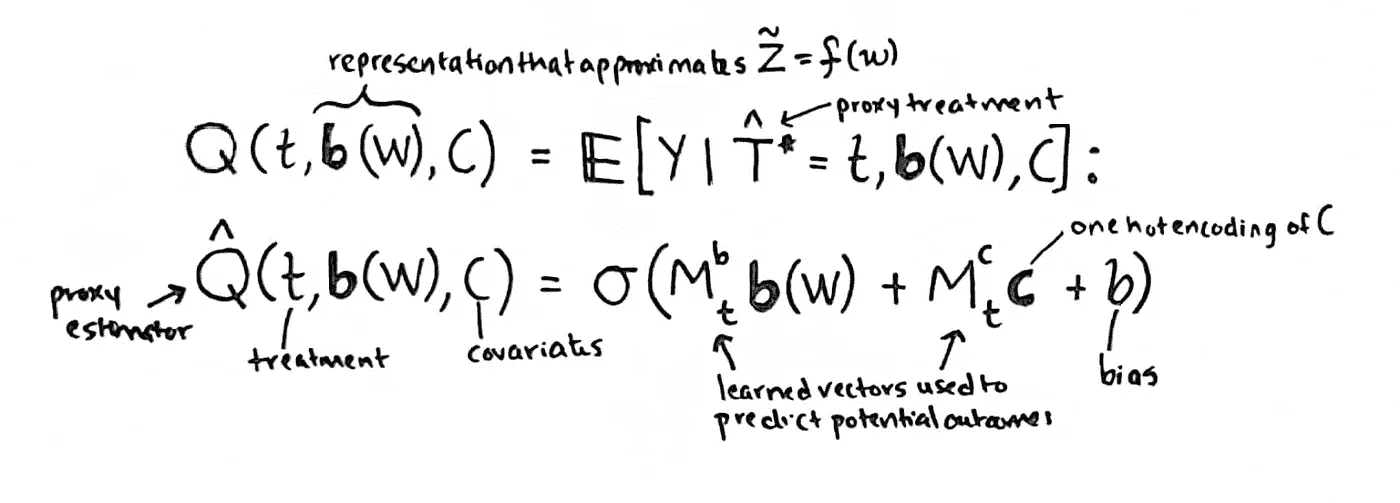 representation that approximates Z̃ = f(w)
proxy treatment
Q(t, b(W), C) = 𝔼[Y | T̂* = t, b(W), C]:
one hot encoding of C
Q̂(t, b(W), C) = σ(M_t^b b(W) + M_t^c c + b)
proxy
estimator
treatment
covariates
learned vectors used to
predict potential outcomes
bias